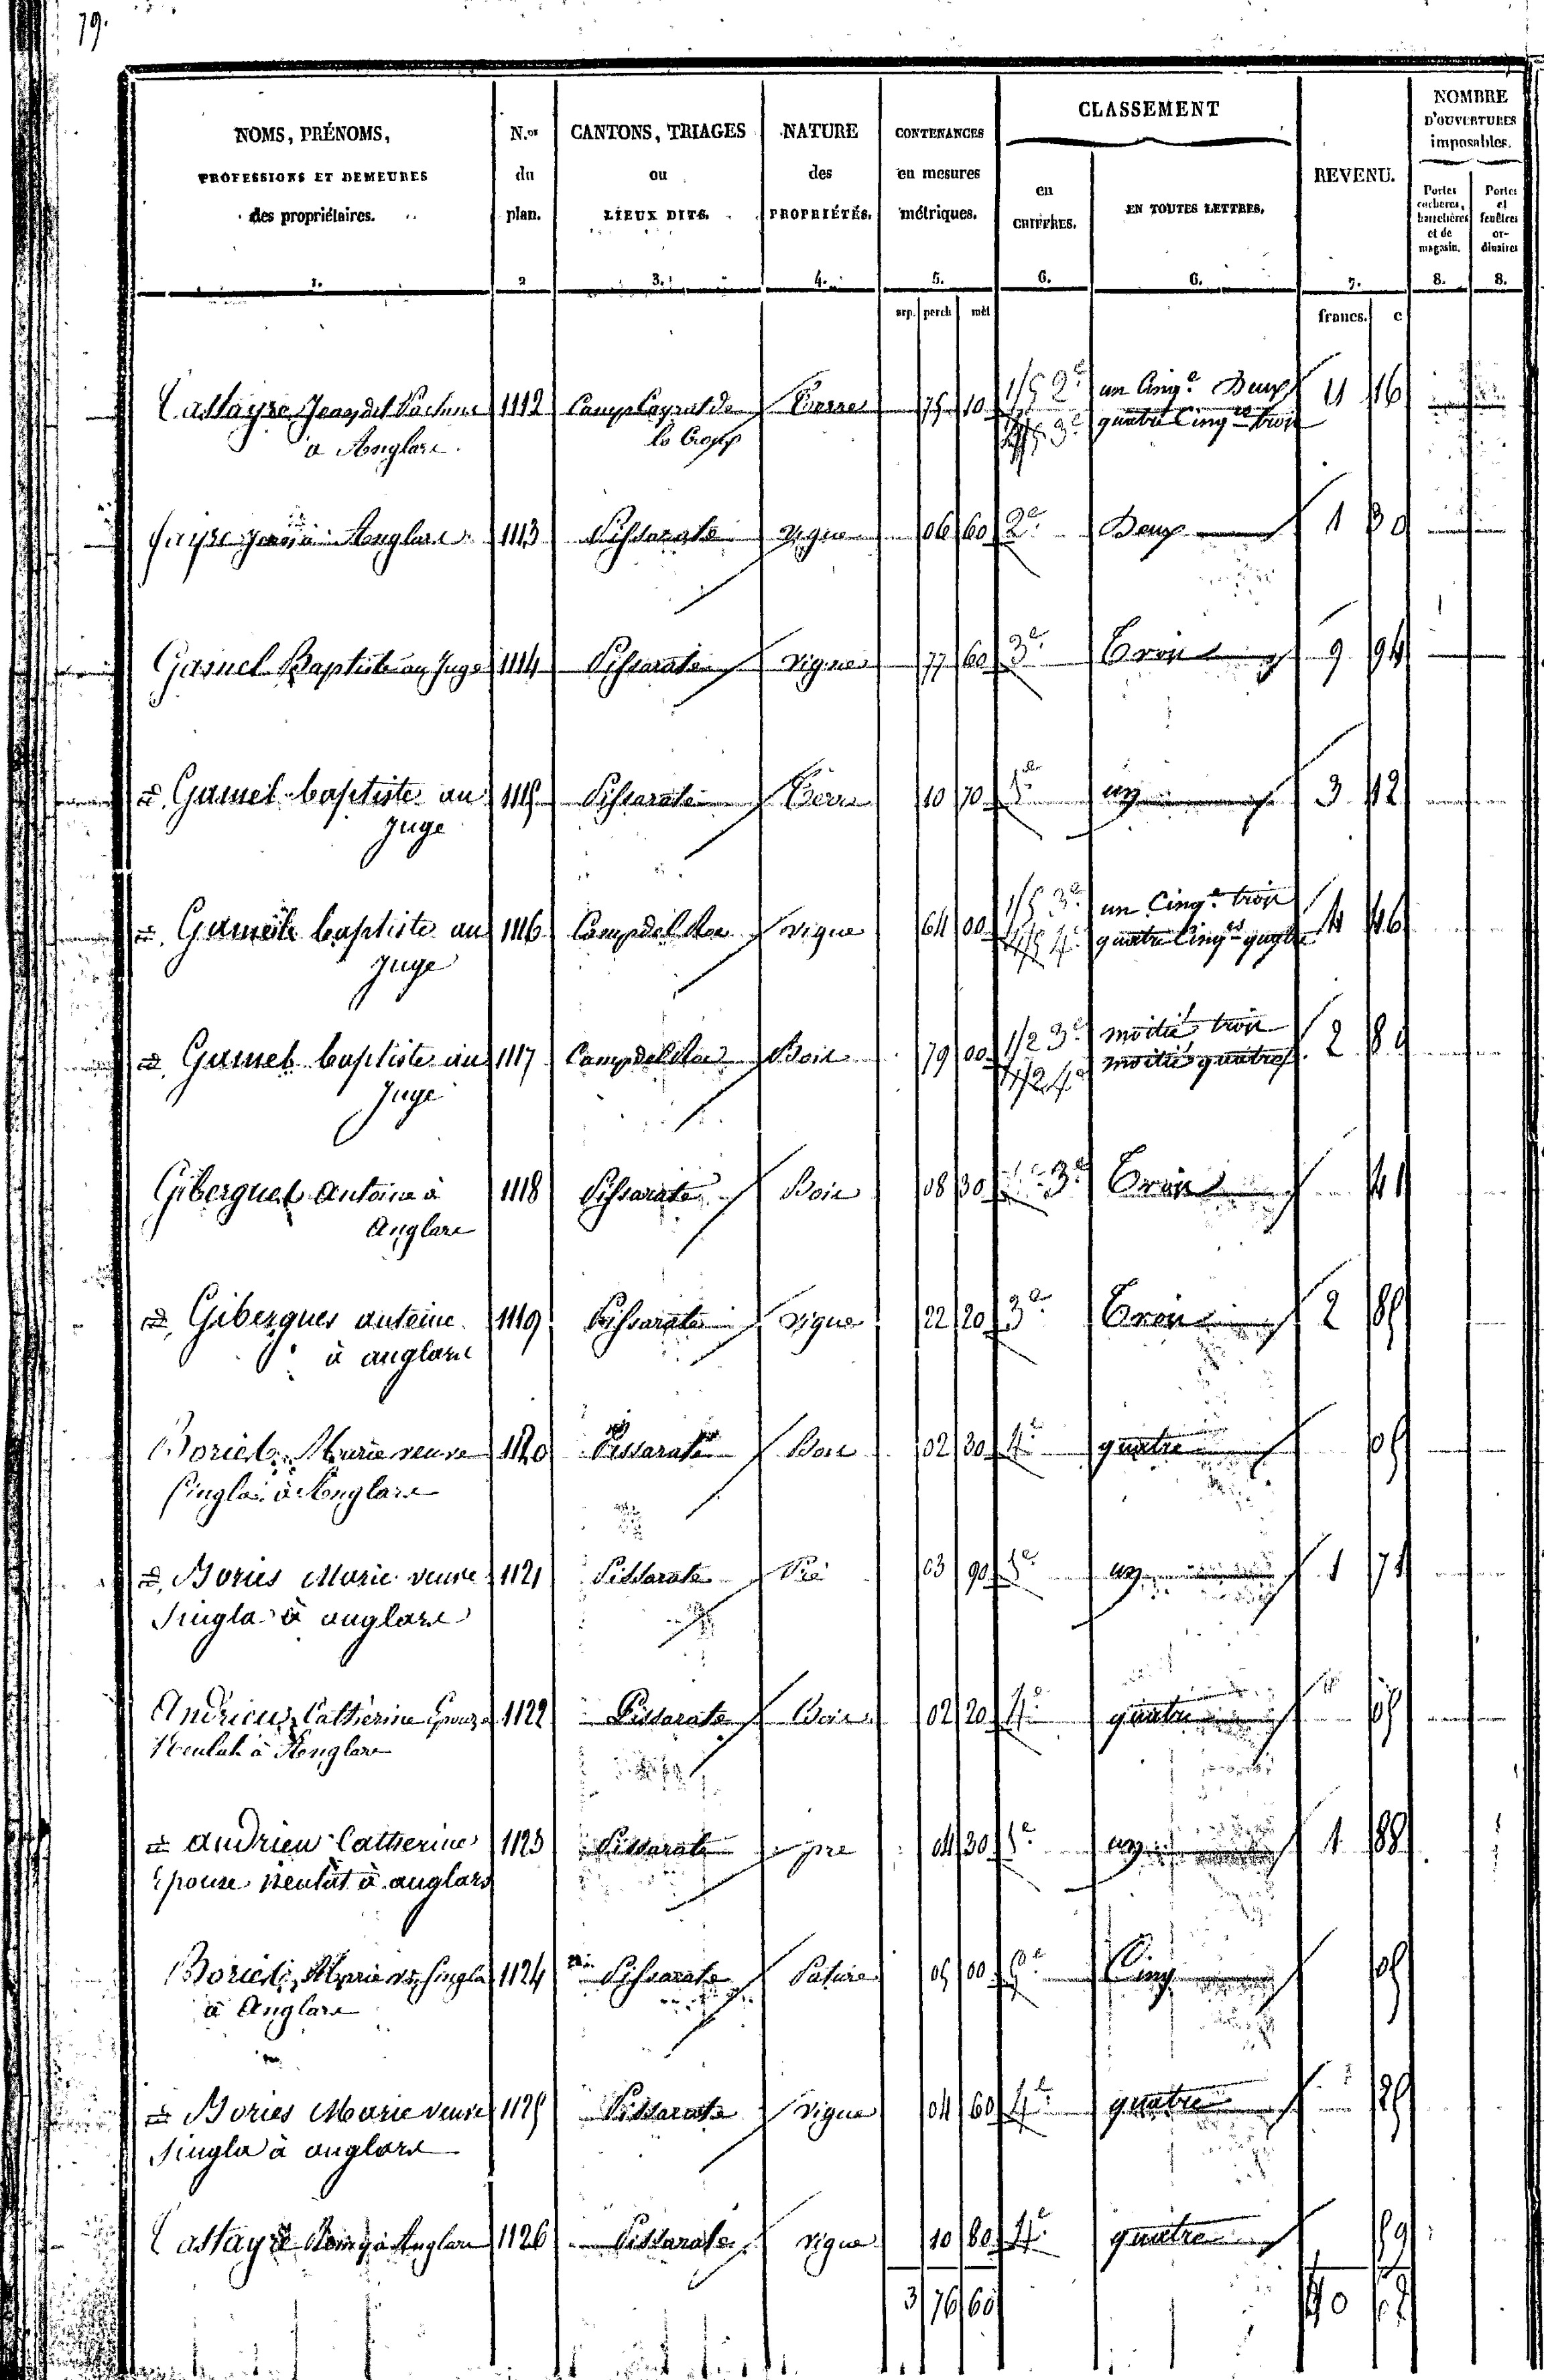 79.
NOMS, PRÉNOMS, PROFESSIONS ET DEMEURES des propriétaires. 1.
N.os du plan. 2
CANTONS, TRIAGES ou LIEUX DITS. 3.
NATURE des PROPRIÉTÉS. 4.
CONTENANCES en mesures métriques. 5.
CLASSEMENT
en CHIFFRES. 6.
EN TOUTES LETTRES. 6.
REVENU. 7.
NOMBRE D'OUVERTURES imposables.
Portes cochères, batelières et de magasin. 8.
Portes et fenêtres or- dinaires 8.
arp. perch mèt francs. c
1112 75 10 1/5 2e un Cinq.e Deux 16
à Anglars 4/5 3e quatre Cinq.es trois
à Anglars 1113 Pissarate vigne 06 60 2e Deux 1 30
Gamel Baptiste au Juge 1114 Pissarate vigne 77 60 3e Trois 9 94
id. Gamel baptiste au 1115 Pissarate Terre 10 70 1e un 3 12
Juge
id. Gamel baptiste au 1116 Camp del vigne 64 00 1/5 3e un Cinq.e trois 4 46
Juge 4/5 4e quatre Cinq.es quatre
id. Gamel baptiste au 1117 Camp del Bois 79 00 1/2 3e moitié trois 2 80
Juge 1/2 4e moitié quatre
Gibergues Antoine à 1118 Pissarate Bois 08 30 3e Trois 41
Anglars
id. Gibergues antoine 1119 Pissarate vigne 22 20 3e Trois 2 85
à anglars
Bories Marie veuve 1120 Pissarate Bois 02 30 4e quatre 05
Singla à Anglars
id. Bories Marie veuve 1121 Pissarate Pré 03 90 1e un 1 71
Singla à anglars
Andrieu Catherine 1122 Pissarate Bois 02 20 4e quatre 05
à Anglars
id. andrieu Catherine 1123 Pissarate pré 04 30 1e un 1 88
épouse à anglars
Bories Marie ve Singla 1124 Pissarate Pature 05 00 5e Cinq 05
à Anglars
id. Bories Marie veuve 1125 Pissarate vigne 04 60 4e quatre 25
Singla à anglars
à Anglars 1126 Pissarate vigne 10 80 4e quatre 59
3 76 60 40